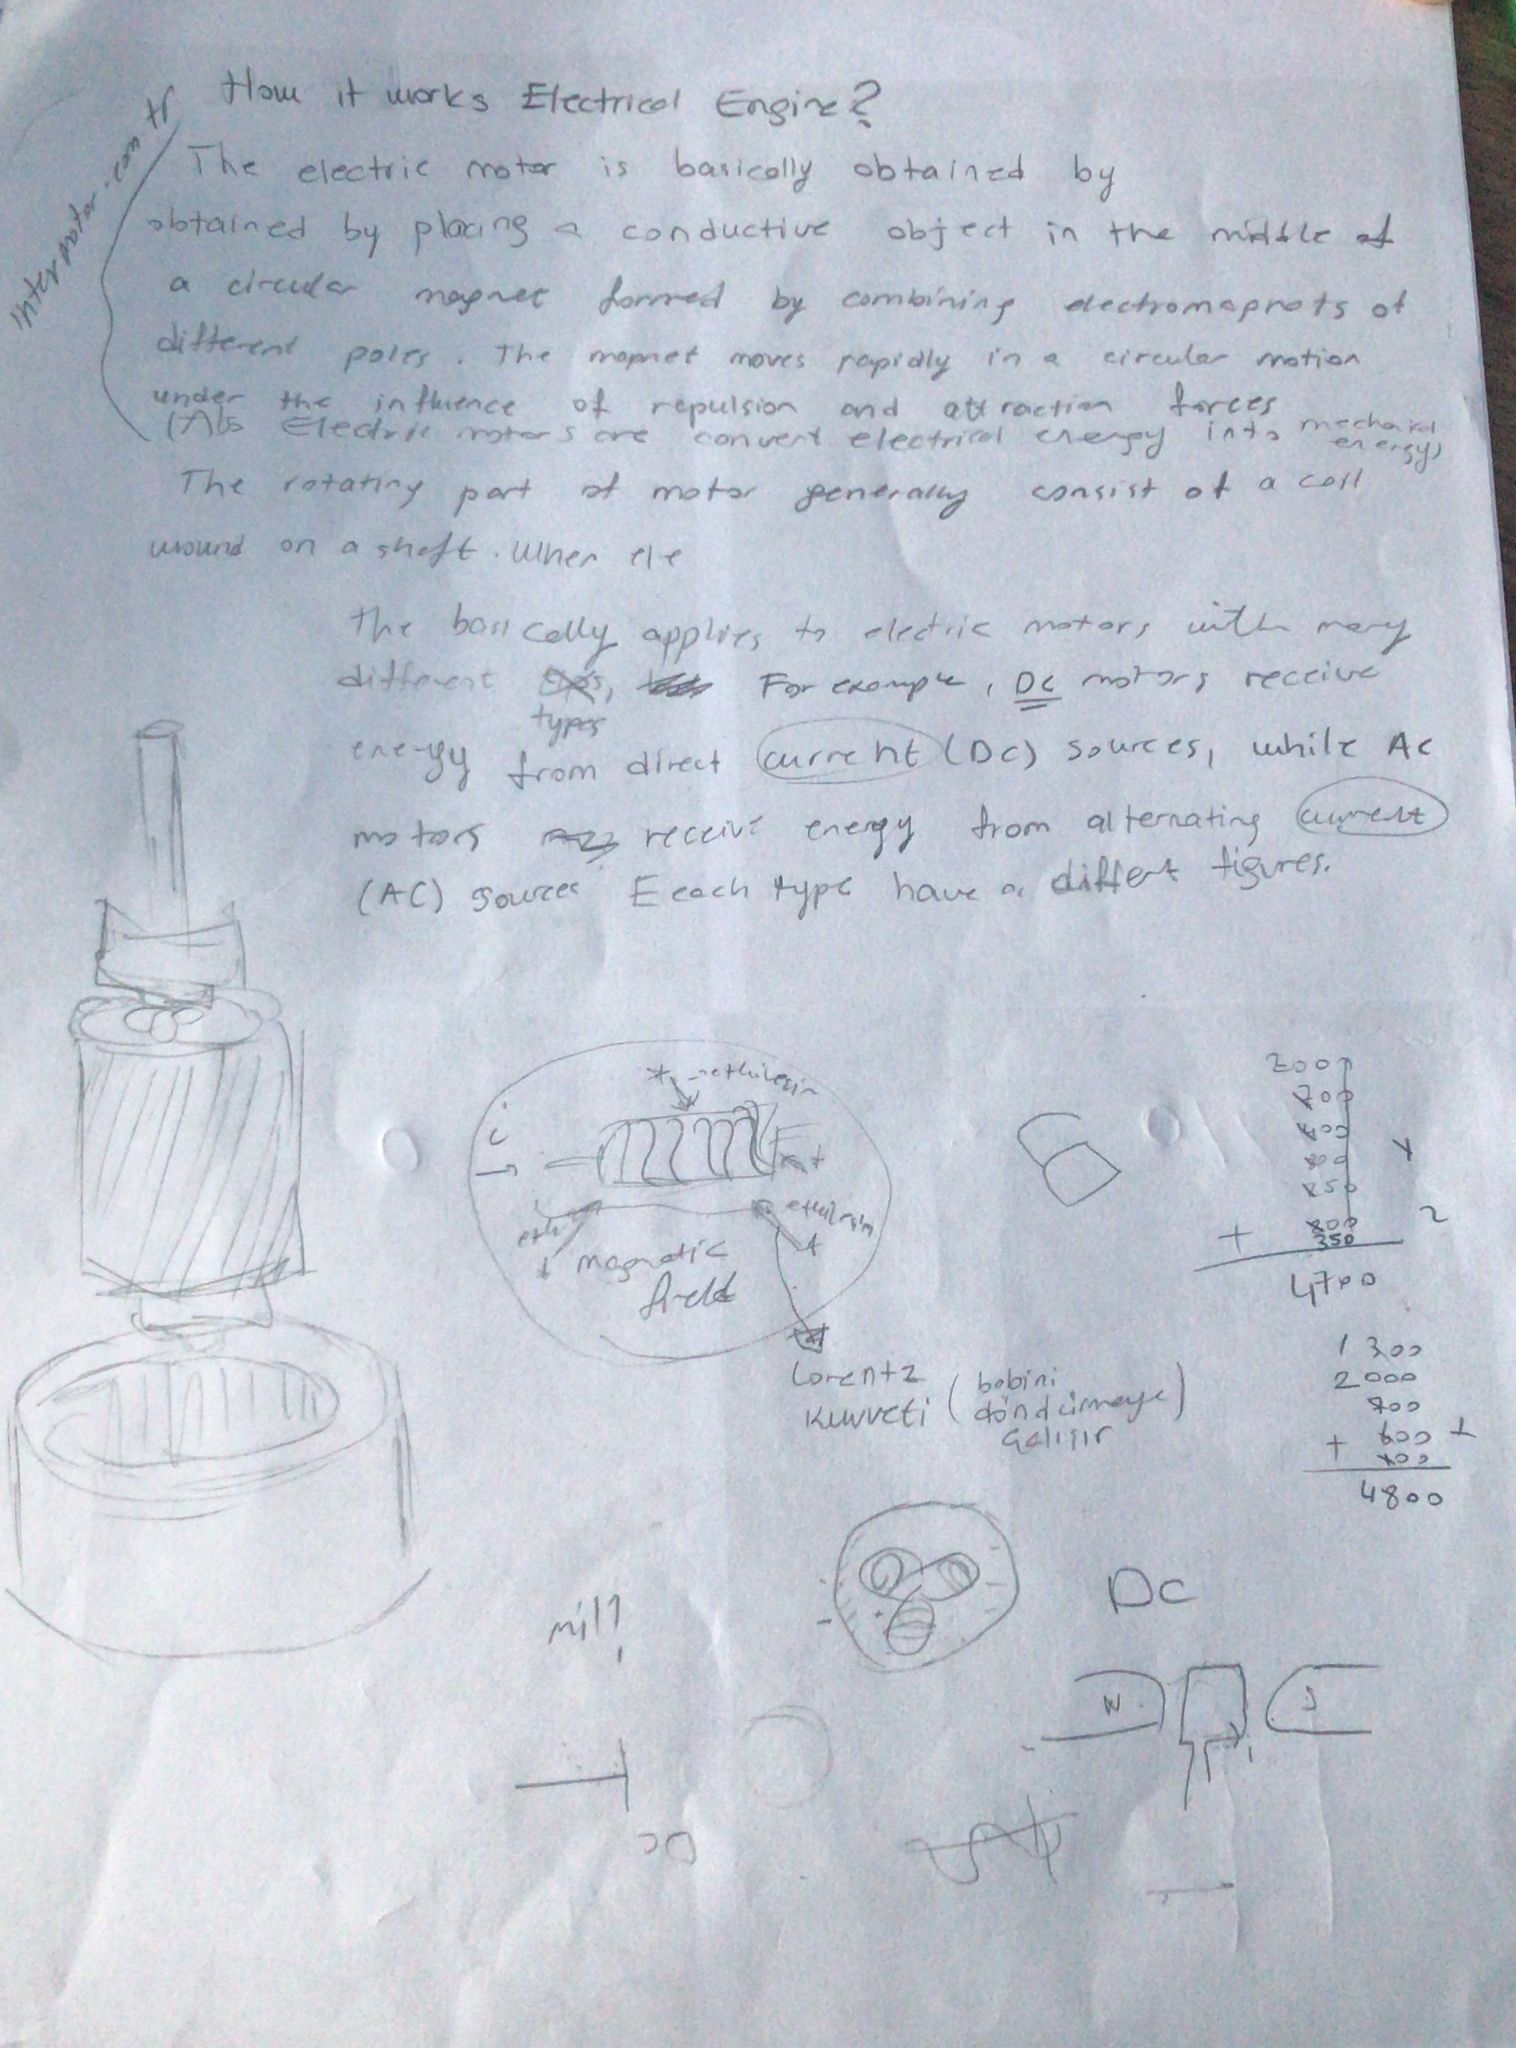 How it works Electrical Engine?
intermotor.com.tr
The electric motor is basically obtained by
obtained by placing a conductive object in the middle of
a circular magnet formed by combining electromagnets of
different poles. The magnet moves rapidly in a circular motion
under the influence of repulsion and attraction forces
Electric motors are convert electrical energy into mechanical energy)
The rotating part of motor generally consist of a coil
wound on a shaft. When ele
The basically applies to electric motors with many
different types
For example, DC motors receive
energy from direct current (DC) sources, while AC
motors receive energy from alternating current
(AC) sources Eeach type have a different figures.
magnetic
field
Lorentz
Kuvveti (bobini
döndürmeye)
Çalışır
2000
700
+ 350
4700
1300
2000
4800
mil?
DC
N S